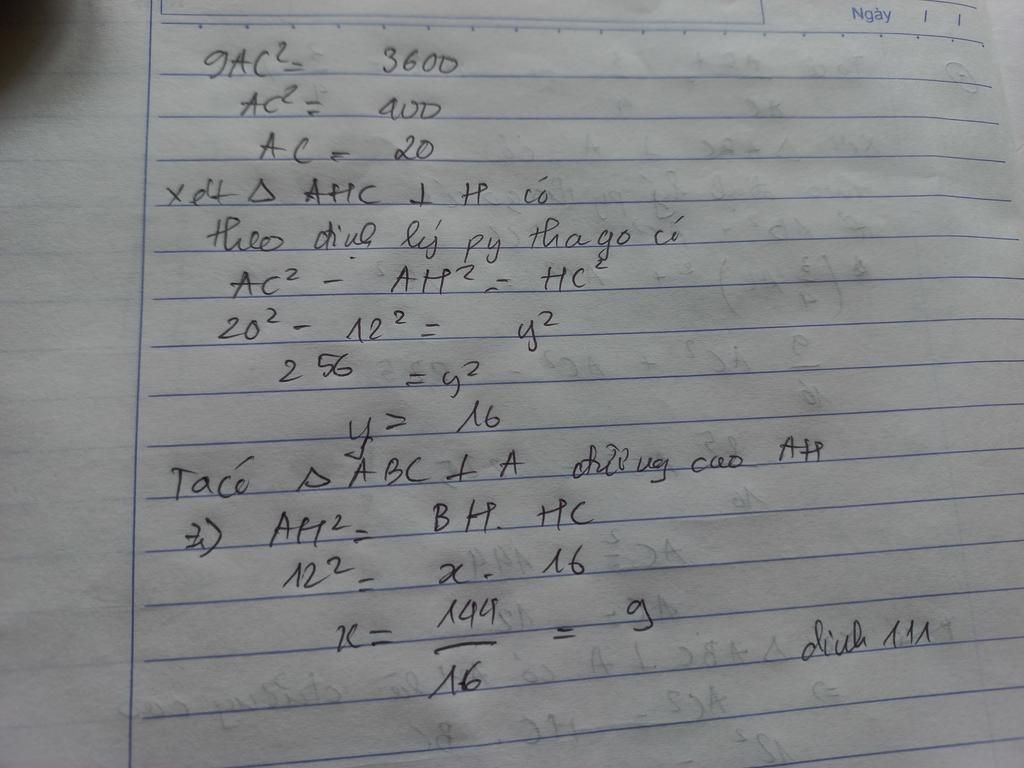 Ngày / /
9AC² = 3600
AC² = 400
AC = 20
xét Δ AHC ⊥ H có
theo định lý py tha go có
AC² - AH² = HC²
20² - 12² = y²
256 = y²
y = 16
Ta có Δ ABC ⊥ A đường cao AH
=) AH² = BH. HC
12² = x. 16
x = 144/16 = 9
dinh 111